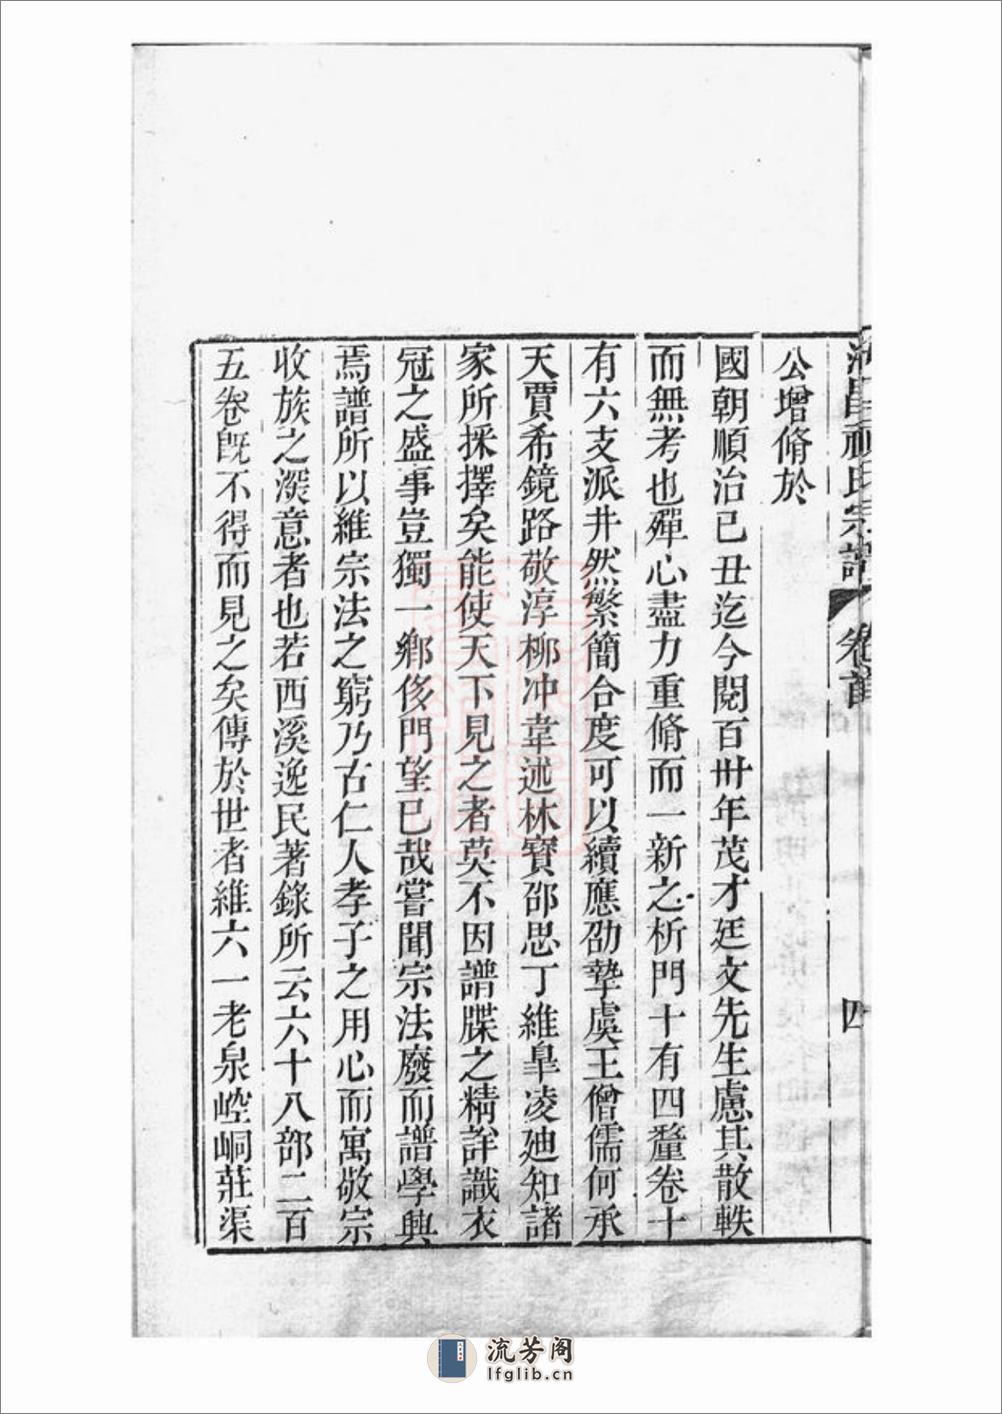 海昌祝氏宗譜 卷首 四
公增脩於
國朝順治已丑迄今閱百卅年茂才廷文先生慮其散軼
而無考也殫心盡力重脩而一新之析門十有四釐卷十
有六支派井然繁簡合度可以續應劭摯虞王僧儒何承
天賈希鏡路敬淳柳冲韋述林寳邵思丁維臯凌廸知諸
家所採擇矣能使天下見之者莫不因譜牒之精詳識衣
冠之盛事豈獨一鄉侈門望已哉嘗聞宗法廢而譜學興
焉譜所以維宗法之窮乃古仁人孝子之用心而寓敬宗
收族之深意者也若西溪逸民著錄所云六十八部二百
五卷旣不得而見之矣傳於世者維六一老泉崆峒莊渠
流芳阁
lfglib.cn